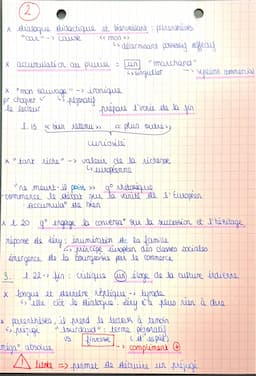 ②
x dialogue didactique et bienveillant : parenthèses
"car" → cause "mon"
↳ déterminant possessif affectif
x accumulation au pluriel = un "marchand"
↳ singulier → système commercial
x "mon sauvage" → ironique
↳ péjoratif
le lecteur prépare l'ironie de la fin
l. 15 "bien retenu" "plus outre"
curiosité
x "tant riche" → valeur de la richesse
↳ européenne
"ne meurt-il point" q° rhétorique
commence le débat sur la vanité de l'Européen
accumula° de bien
x l. 20 q° engage la conversa° sur la succession et l'héritage
réponse de Léry : énumération de la famille
↳ principe européen des classes sociales
émergence de la bourgeoisie par le commerce
3. l. 22 → fin : critique un éloge de la culture indienne
x longue et dernière réplique → tirade
↳ elle clôt le dialogue Léry n'a plus rien à dire
x parenthèses, il prend le lecteur à témoin
↳ préjugé "lourdaud" : terme péjoratif
VS finesse (d'esprit)
"absolue" → compliment ⊕
⚠ → permet de détruire un préjugé